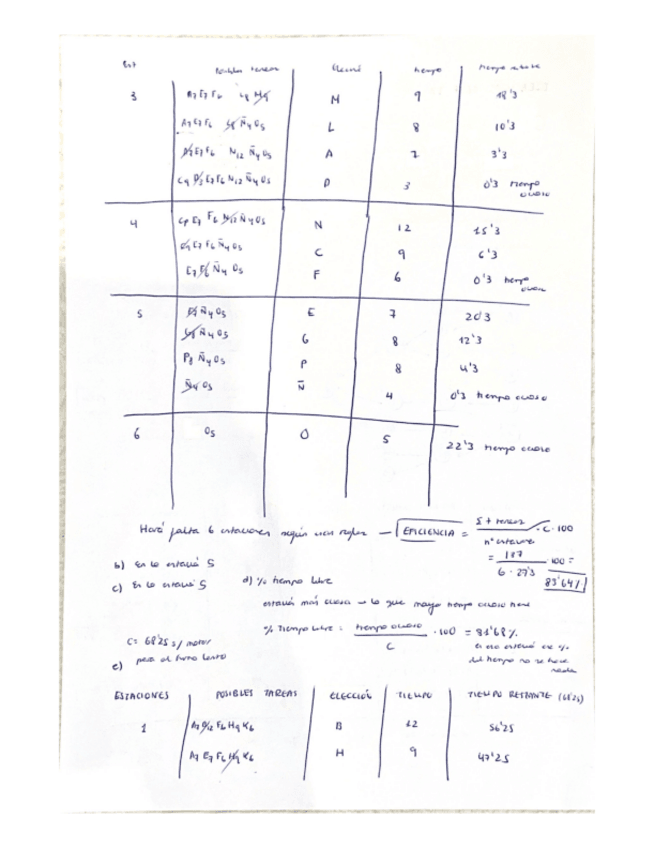 Est Posibles tareas Elección tiempo tiempo restante
3 A7 E7 F6 L8 H9 M 9 18'3
A7 E7 F6 L8 Ñ4 O5 L 8 10'3
A7 E7 F6 N12 Ñ4 O5 A 7 3'3
C9 D3 E7 F6 N12 Ñ4 O5 D 3 0'3 tiempo ocioso
4 C9 E7 F6 N12 Ñ4 O5 N 12 15'3
C9 E7 F6 Ñ4 O5 C 9 6'3
E7 F6 Ñ4 O5 F 6 0'3 tiempo ocioso
5 E7 Ñ4 O5 E 7 20'3
G8 Ñ4 O5 G 8 12'3
P8 Ñ4 O5 P 8 4'3
Ñ4 O5 Ñ 4 0'3 tiempo ocioso
6 O5 O 5 22'3 tiempo ocioso
Hará falta 6 estaciones según esta regla — EFICIENCIA = Σ t tareas / nº estaciones · C · 100
= 137 / 6 · 27'3 · 100 =
83'64%
b) En la estación 5
c) En la estación 5 d) % tiempo libre
estación más ociosa → la que mayor tiempo ocioso tiene
% Tiempo libre = tiempo ocioso / C · 100 = 81'68%
En esa estación ese %
del tiempo no se hace
nada
C = 68'25 s/motor
e) para el turno lento
ESTACIONES POSIBLES TAREAS ELECCIÓN TIEMPO TIEMPO RESTANTE (68'25)
1 A7 B12 F6 H9 K6 B 12 56'25
A7 E7 F6 H9 K6 H 9 47'25